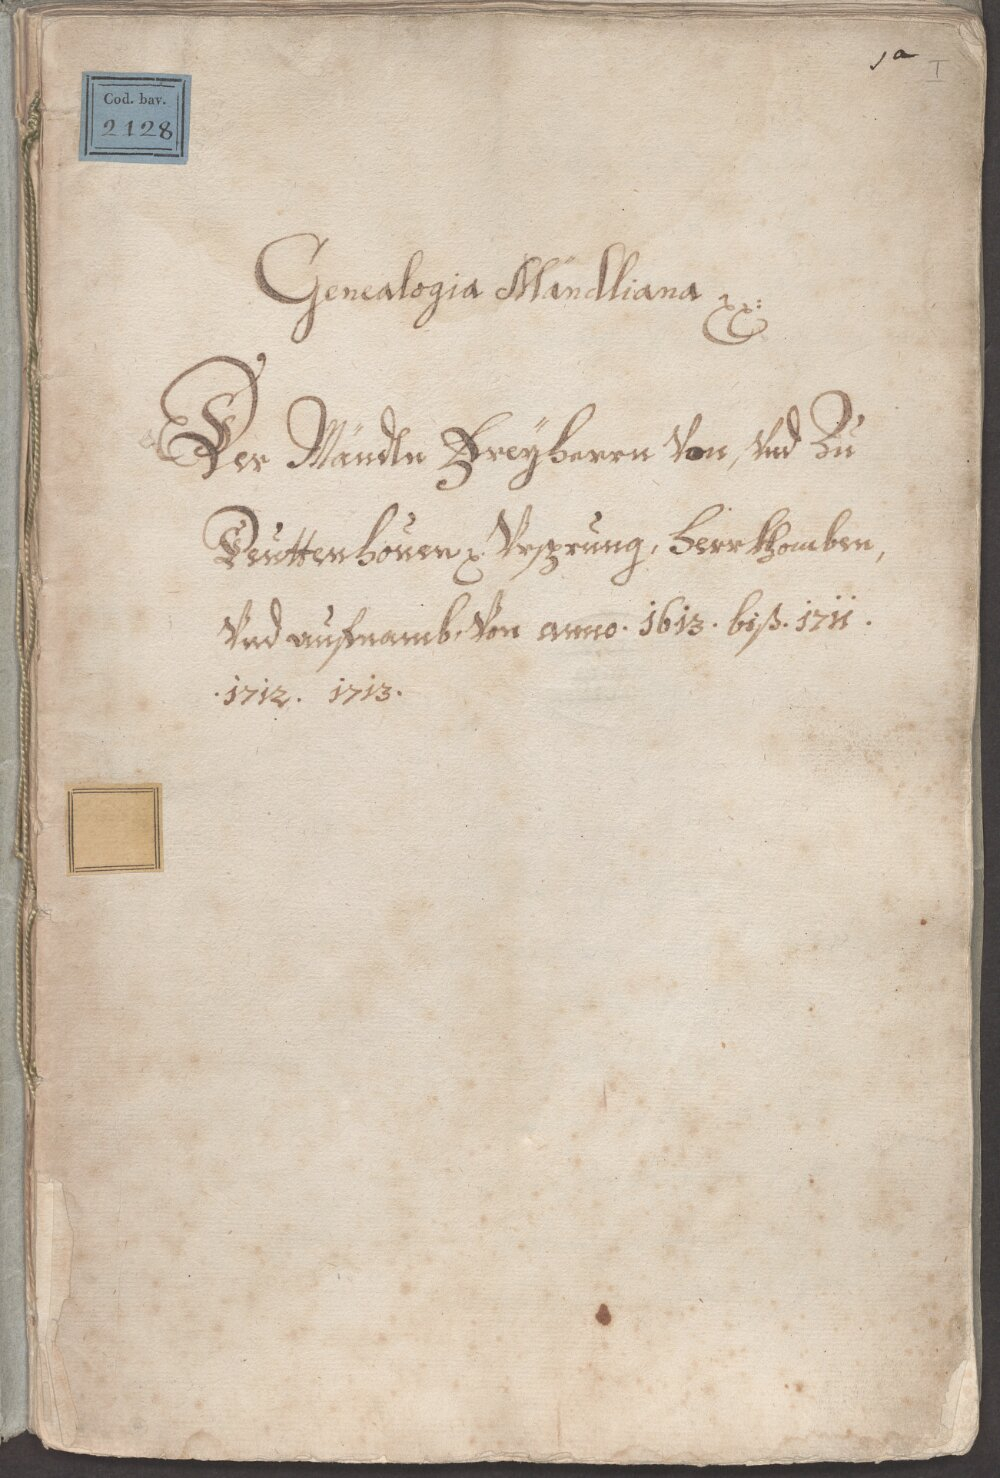 1a
I
Cod. bav.
2128
Genealogia Mändliana
Der Mändln Freÿherrn Von, Vnd Zu
Deüttenhouen x. Vrsprung, herrkhomben,
Vnd aufnamb, Von anno. 1613. biß. 1711.
.1712. 1713.